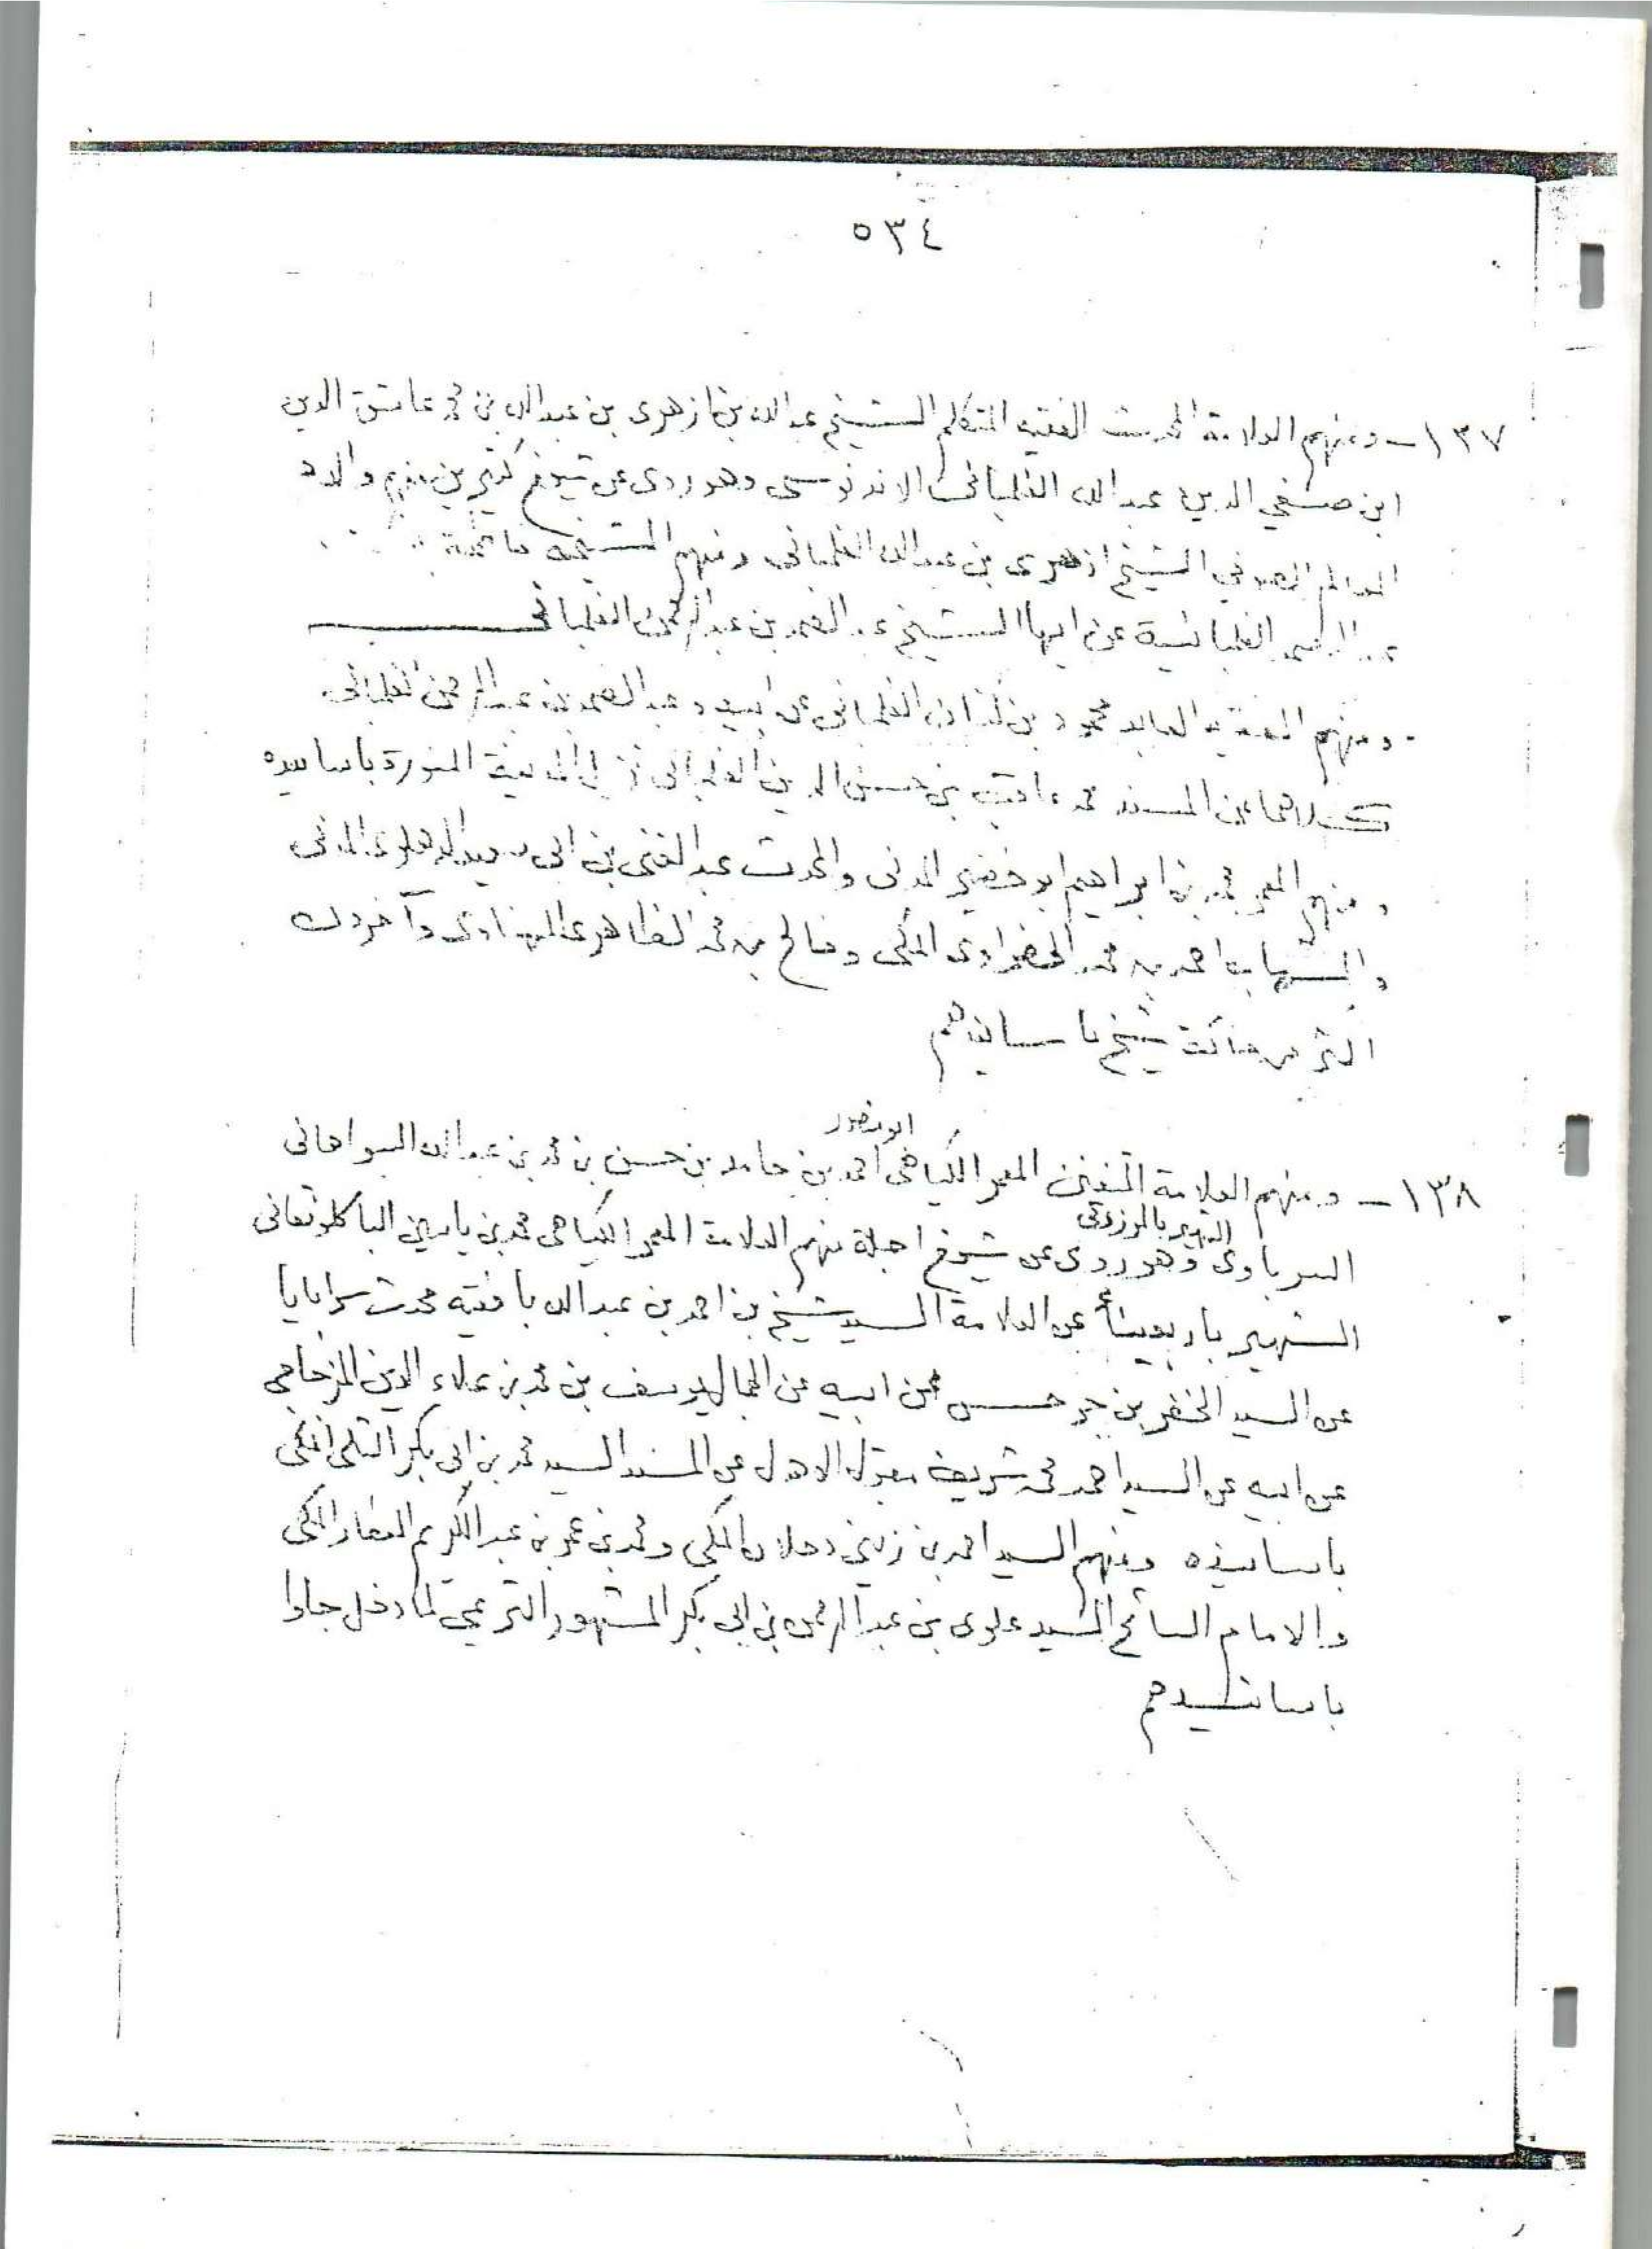 ٥٣٤
١٣٧ – ومنهم العلامة المحدث الفقيه المتكلم الشيخ عبدالله بن ازهرى بن عبدالله بن محمد عاشق الدين
ابن صفي الدين عبدالله الفلمبانى الاندونوسى وهو روى عن شيوخ كثيرين منهم والده
العالم الصوفي الشيخ ازهرى بن عبدالله الفلمبانى ومنهم الشيخه فاطمة
عبد الصمد الفلمبانية عن ابيها الشيخ عبد الصمد بن عبدالرحمن الفلمبانى
ومنهم الفقيه العابد محمود بن كنان الفلمبانى عن ابيه وعبد الصمد بن عبدالرحمن الفلمبانى
كلاهما عن المسند محمد عاقب بن حسن الدين الفلمبانى نزيل المدينة المنورة باسانيده
ومنهم المعمر محمد بن ابراهيم ابو خضير المدنى والمحدث عبد الغنى بن ابى سعيد الدهلوى المدنى
والشهاب احمد بن محمد الحضراوى المكى وفالح بن محمد الظاهرى المهنادى وآخرون
اكثر من مائة شيخ باسانيدهم
ابو منصور
١٣٨ – ومنهم العلامة المتفنن المعمر الكياهى احمد بن حامد بن حسن بن محمد بن عبدالله السواهانى
الشهير بالمرزوقى
السرباوى وهو روى عن شيوخ اجلة منهم العلامة المعمر الكياهى محمد بن ياسين الباكلونقانى
الشهير باربعينا عن العلامة السيد شيخ بن احمد بن عبدالله بافقيه محدث سرابايا
عن السيد الخضر بن حسن عن ابيه عن الجمال يوسف بن محمد بن علاء الدين المزجاجى
عن ابيه عن السيد احمد محمد شريف مقبول الاهدل عن المسند السيد محمد بن ابى بكر الشلى المكى
باسانيده ومنهم السيد احمد بن زينى دحلان المكى ومحمد بن عمر بن عبد الكريم العطار المكى
والامام السائح السيد علوى بن عبدالرحمن بن ابى بكر المشهور التريمي لما دخل جاوا
باسانيدهم